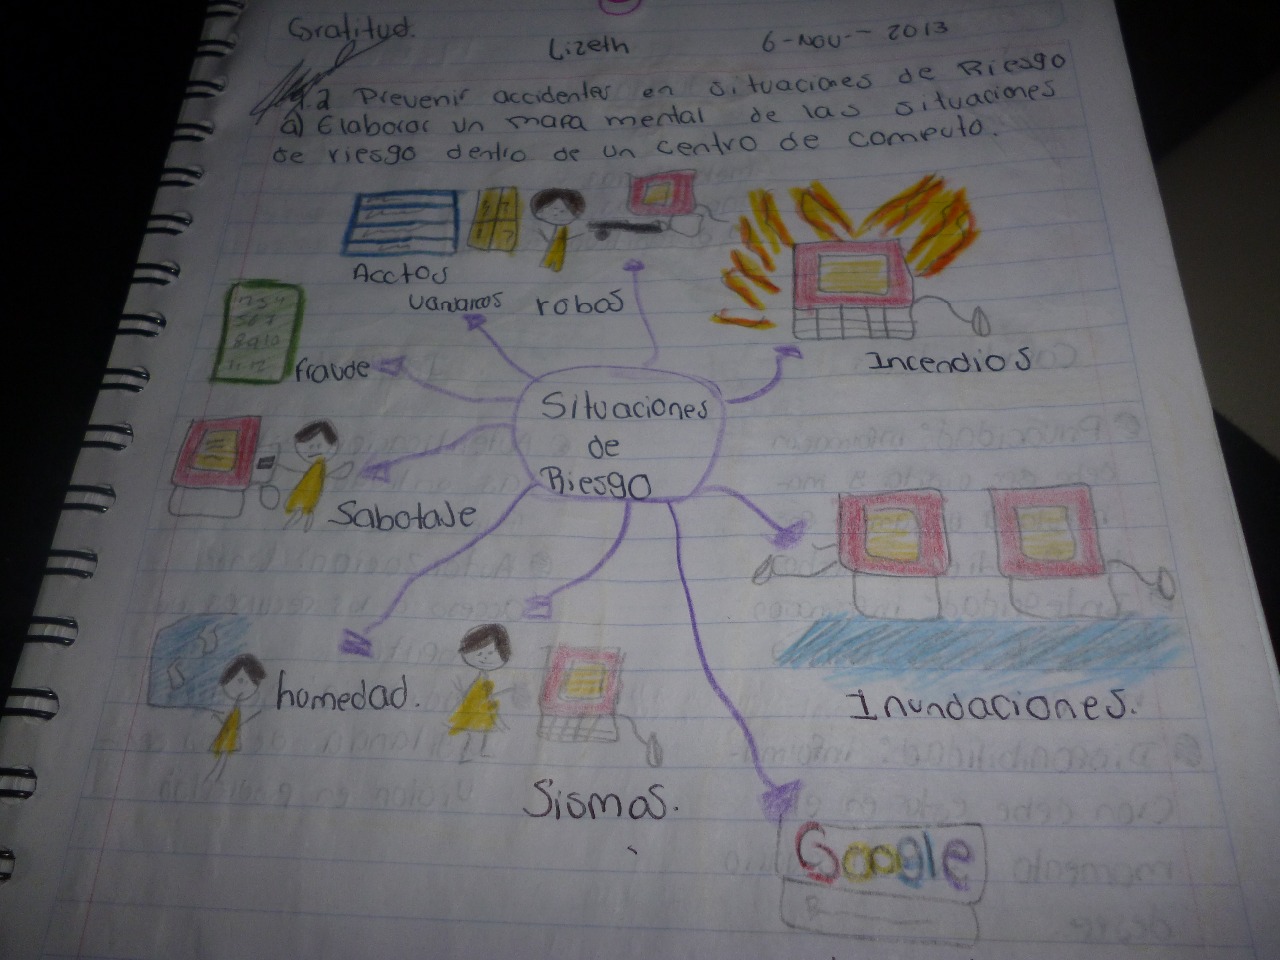 Gratitud.
Lizeth
6-Nov-- 2013
4.2 Prevenir accidentes en situaciones de Riesgo
a) Elaborar un mapa mental de las situaciones
de riesgo dentro de un centro de computo.
Acctos
robos
Incendios
fraude
Situaciones
de
Riesgo
Sabotaje
homedad.
Inundaciones.
Sismos.
Google